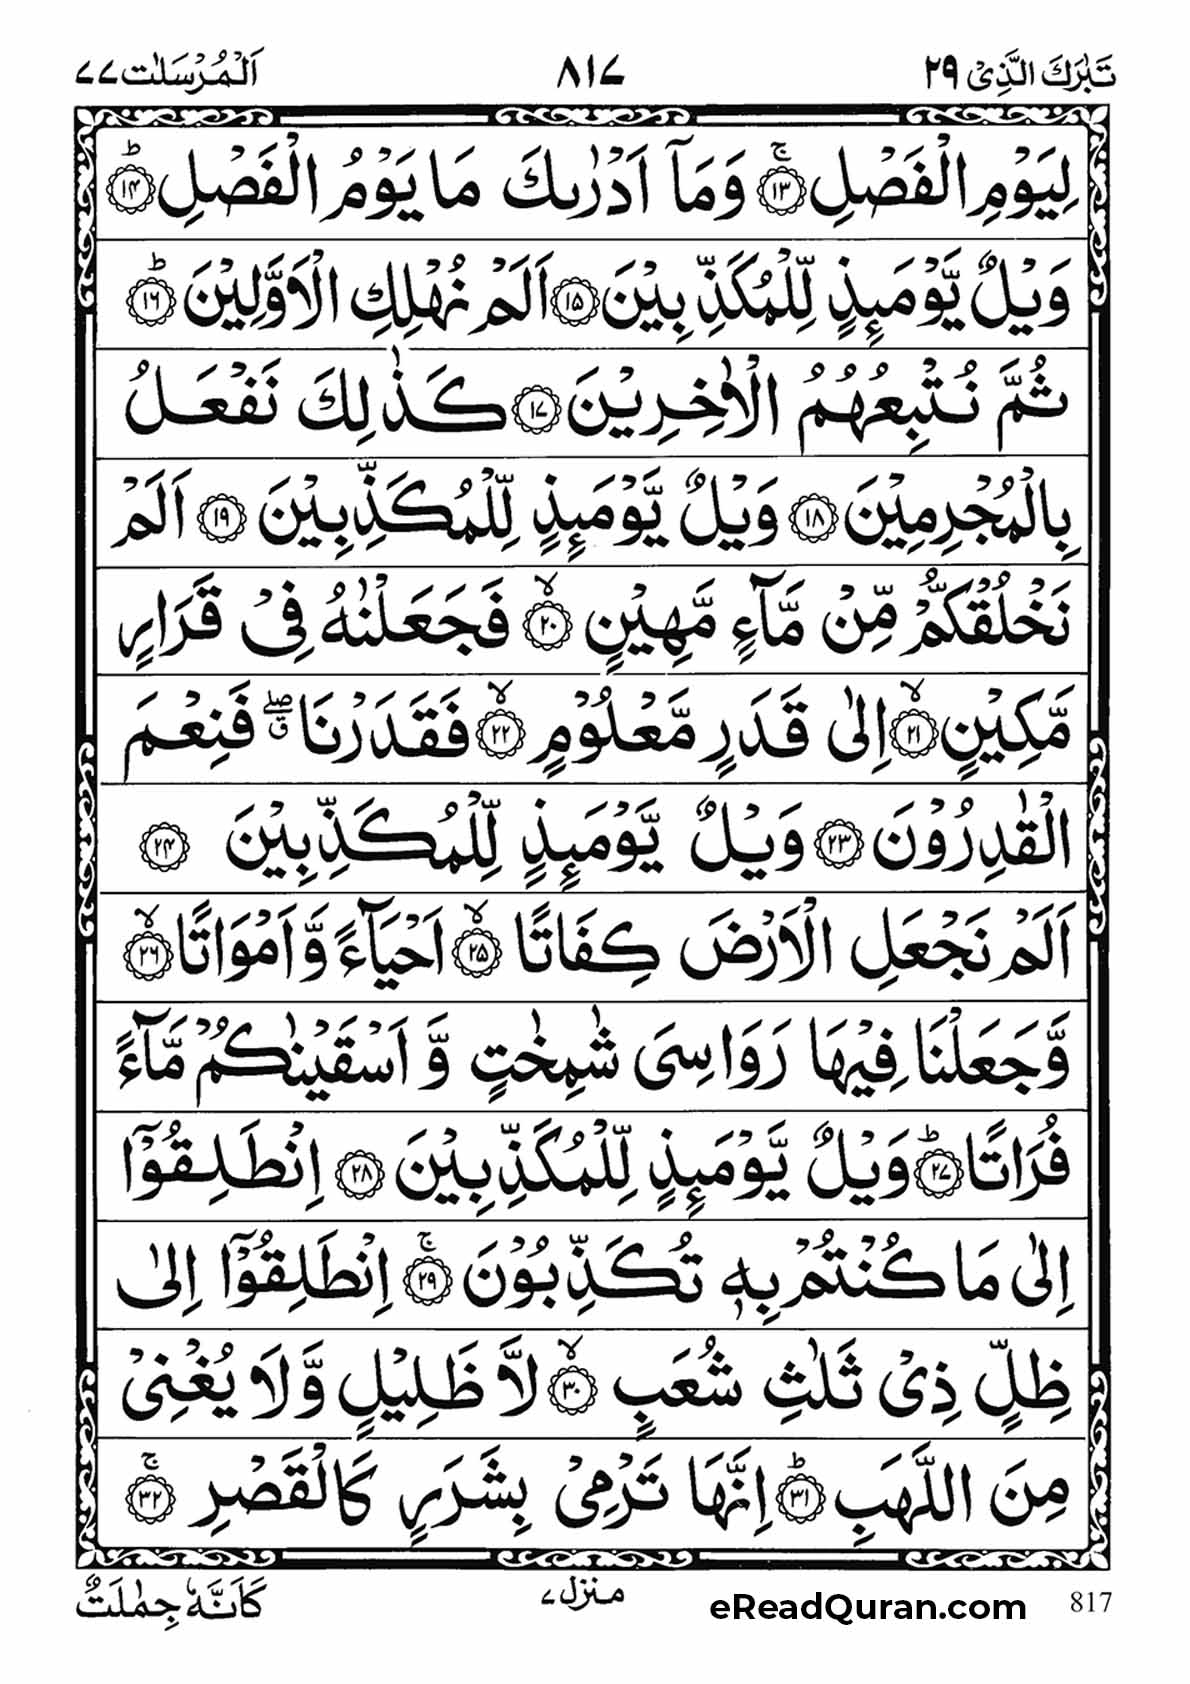 تَبٰرَكَ الَّذِیْ ٢٩
٨١٧
اَلْمُرْسَلٰت ٧٧
لِيَوْمِ الْفَصْلِ ۚ﴿١٣﴾ وَمَاۤ اَدْرٰىكَ مَا يَوْمُ الْفَصْلِ ؕ﴿١٤﴾
وَيْلٌ يَّوْمَىِٕذٍ لِّلْمُكَذِّبِيْنَ ﴿١٥﴾ اَلَمْ نُهْلِكِ الْاَوَّلِيْنَ ؕ﴿١٦﴾
ثُمَّ نُتْبِعُهُمُ الْاٰخِرِيْنَ ﴿١٧﴾ كَذٰلِكَ نَفْعَلُ
بِالْمُجْرِمِيْنَ ﴿١٨﴾ وَيْلٌ يَّوْمَىِٕذٍ لِّلْمُكَذِّبِيْنَ ﴿١٩﴾ اَلَمْ
نَخْلُقْكُّمْ مِّنْ مَّآءٍ مَّهِيْنٍ ۙ﴿٢٠﴾ فَجَعَلْنٰهُ فِیْ قَرَارٍ
مَّكِيْنٍ ۙ﴿٢١﴾ اِلٰى قَدَرٍ مَّعْلُوْمٍ ۙ﴿٢٢﴾ فَقَدَرْنَا ۖق فَنِعْمَ
الْقٰدِرُوْنَ ﴿٢٣﴾ وَيْلٌ يَّوْمَىِٕذٍ لِّلْمُكَذِّبِيْنَ ﴿٢٤﴾
اَلَمْ نَجْعَلِ الْاَرْضَ كِفَاتًا ۙ﴿٢٥﴾ اَحْيَآءً وَّاَمْوَاتًا ۙ﴿٢٦﴾
وَّجَعَلْنَا فِيْهَا رَوَاسِىَ شٰمِخٰتٍ وَّاَسْقَيْنٰكُمْ مَّآءً
فُرَاتًا ؕ﴿٢٧﴾ وَيْلٌ يَّوْمَىِٕذٍ لِّلْمُكَذِّبِيْنَ ﴿٢٨﴾ اِنْطَلِقُوْۤا
اِلٰى مَا كُنْتُمْ بِهٖ تُكَذِّبُوْنَ ۚ﴿٢٩﴾ اِنْطَلِقُوْۤا اِلٰى
ظِلٍّ ذِیْ ثَلٰثِ شُعَبٍ ۙ﴿٣٠﴾ لَّا ظَلِيْلٍ وَّلَا يُغْنِیْ
مِنَ اللَّهَبِ ؕ﴿٣١﴾ اِنَّهَا تَرْمِیْ بِشَرَرٍ كَالْقَصْرِ ۚ﴿٣٢﴾
كَاَنَّهٗ جِمٰلَتٌ
منزل ٧
eReadQuran.com
817